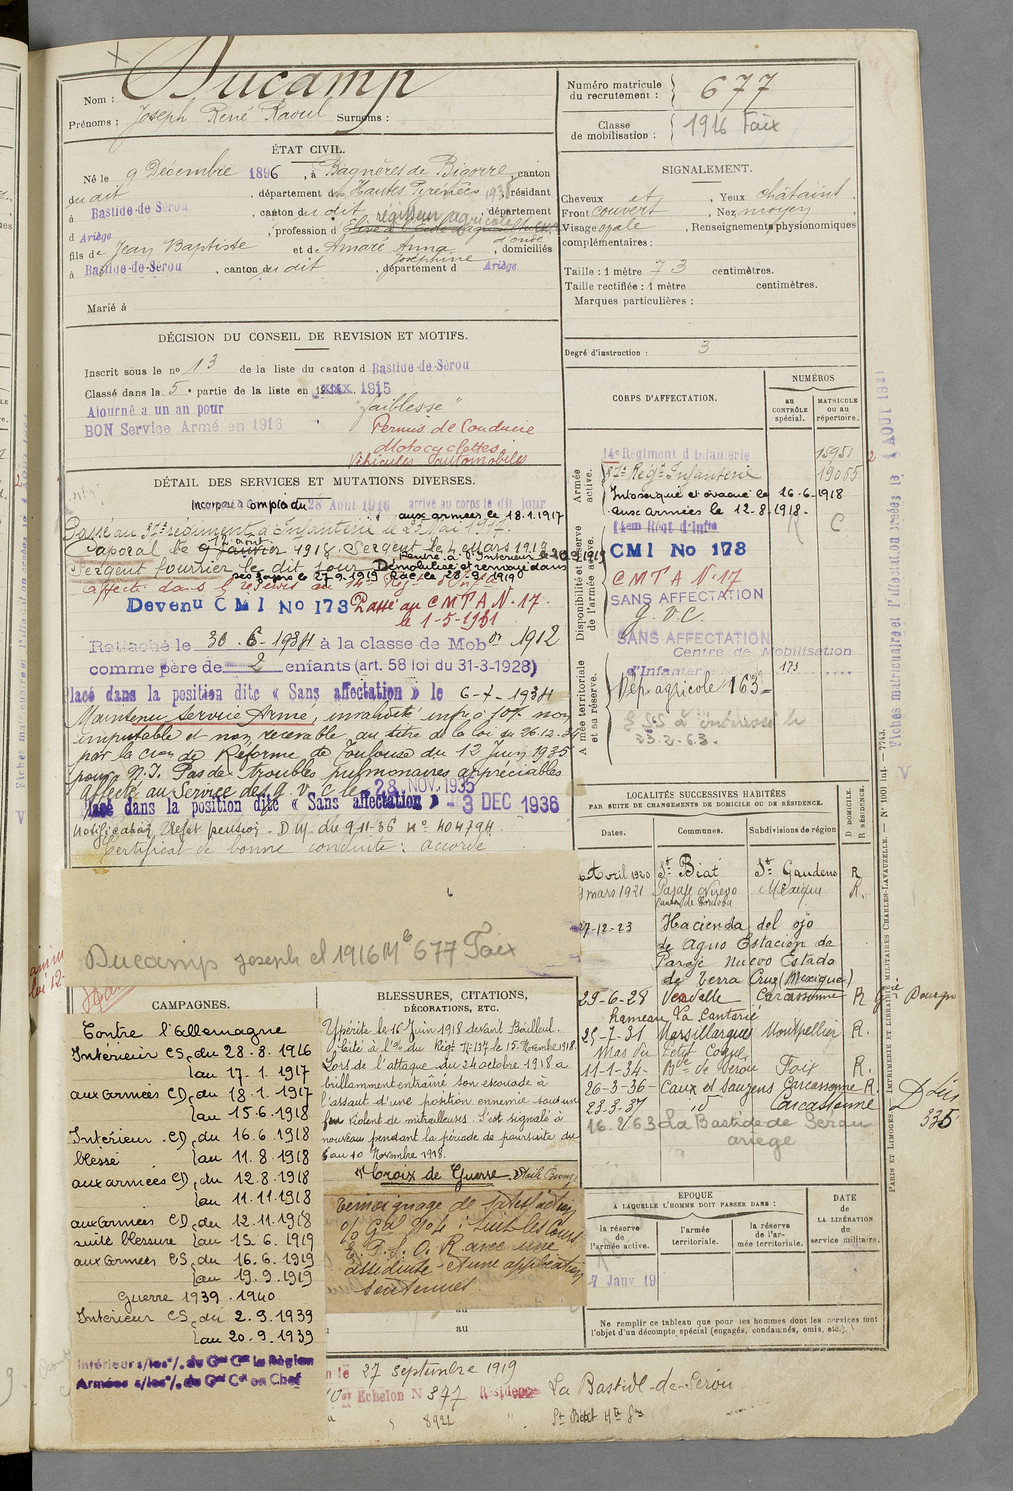 Ducamp
Nom :
Prénoms : Joseph René Raoul Surnoms :
Numéro matricule du recrutement : 677
Classe de mobilisation : 1916 Foix
ÉTAT CIVIL.
Né le 9 Décembre 1896, à Bagnères de Bigorre, canton
du dit, département des Hautes Pyrénées, résidant
à Bastide-de-Sérou, canton du dit, département
d Ariège, profession d régisseur agricole
fils de Jean Baptiste et de Amaré Anna Joséphine, domiciliés
à Bastide-de-Sérou, canton du dit, département d Ariège
Marié à
SIGNALEMENT.
Cheveux , Yeux châtaint
Front couvert , Nez moyen
Visage ovale , Renseignements physionomiques
complémentaires :
Taille : 1 mètre 73 centimètres.
Taille rectifiée : 1 mètre centimètres.
Marques particulières :
Degré d'instruction : 3
DÉCISION DU CONSEIL DE REVISION ET MOTIFS.
Inscrit sous le no 13 de la liste du canton d Bastide-de-Sérou
Classé dans la 5e partie de la liste en 1915
Ajourné a un an pour "faiblesse"
BON Service Armé en 1916
Permis de Conduire
Motocyclettes
Véhicules Automobiles
DÉTAIL DES SERVICES ET MUTATIONS DIVERSES.
Incorporé à compter du 28 Août 1916 arrivé au corps le dit jour
aux armées le 18.1.1917
Caporal le 9 Janvier 1918. Sergent le 4 Mars 1919
Sergent fourrier le dit jour Démobilisé et renvoyé dans
ses foyers le 27.9.1919
Devenu CMI No 173 Passé au CMTA N. 17.
le 1-5-1931
Rattaché le 30-6-1934 à la classe de Mobon 1912
comme père de 2 enfants (art. 58 loi du 31-3-1928)
lacé dans la position dite « Sans affectation » le 6-7-1934
Maintenu Service Armé, invalidité infre à 10% non
imputable et non recevable au titre de la loi du 26.12.34
par la Cion de Réforme de Toulouse du 12 Juin 1935
pour : N.I. Pas de troubles pulmonaires appréciables
Affecté au Service des g. v. c le 28 NOV. 1935
lacé dans la position dite « Sans affectation » - 3 DEC 1936
Certificat de bonne conduite : accordé
Ducamp Joseph cl 1916 Mle 677 Foix
CORPS D'AFFECTATION.
NUMÉROS
au CONTRÔLE spécial.
MATRICULE ou au répertoire.
Armée active.
14e Régiment d'Infanterie 15951
Régt Infanterie 19055
Intoxiqué et évacué le 16-6-1918
aux armées le 12-8-1918.
Disponibilité et réserve de l'armée active.
14em Régt d'Infie
CMI No 173
CMTA N. 17
SANS AFFECTATION
g.v.c.
SANS AFFECTATION
Armée territoriale et sa réserve.
Centre de Mobilisation
d'Infanterie 173
Dép. agricole 163
23.2.63.
LOCALITÉS SUCCESSIVES HABITÉES
PAR SUITE DE CHANGEMENTS DE DOMICILE OU DE RÉSIDENCE.
Dates. Communes. Subdivisions de région
D. DOMICILE. R. RÉSIDENCE.
Avril 1920 St Béat St Gaudens R
mars 1921 Mexique R.
7-12-23 Hacienda del ojo
de agua Estacion de
Paraje Nuevo Estado
de Terra Cruz (Mexique)
29-6-28 Verdalle Carcassonne R
hameau La Cantarie
25-7-31 Marsillargues Montpellier R.
11-1-34- Bde de Sérou Foix R.
26-3-36- Caux et Sauzens Carcassonne R.
23-3-37 id Carcassonne
16.2.63 La Bastide de Serou
ariège
CAMPAGNES.
Contre l'Allemagne
Intérieur CS du 28.8.1916
au 17.1.1917
aux armées CD du 18.1.1917
au 15.6.1918
Intérieur CD du 16.6.1918
blessé au 11.8.1918
aux armées CD du 12.8.1918
au 11.11.1918
aux armées CD du 12.11.1918
suite blessure au 15.6.1919
aux armées CS du 16.6.1919
au 19.9.1919
Guerre 1939.1940
Intérieur CS du 2.9.1939
au 20.9.1939
BLESSURES, CITATIONS,
DÉCORATIONS, ETC.
Ypérité le 16 Juin 1918 devant Bailleul.
Cité à l'O/ du Régt N: 137 le 15 Novembre 1918.
Lors de l'attaque du 24 octobre 1918 a
brillamment entraîné son escouade à
l'assaut d'une position ennemie sous un
feu violent de mitrailleuses. S'est signalé à
nouveau pendant la période de poursuite du
au 10 Novembre 1918.
Croix de Guerre - Etoile Bronze
Témoignage de satisfaction
suit les Cours
E.P.S.O.R avec une
assiduité et une application
soutenues
EPOQUE
A LAQUELLE L'HOMME DOIT PASSER DANS :
la réserve de l'armée active.
l'armée territoriale.
la réserve de l'armée territoriale.
DATE DE LA LIBÉRATION du service militaire.
7 Janv 19
Ne remplir ce tableau que pour les hommes dont les services font
l'objet d'un décompte spécial (engagés, condamnés, omis, etc.).
au
au
27 Septembre 1919
Echelon N 377 Résidence La Bastide-de-Serou
8922
PARIS ET LIMOGES. — IMPRIMERIE ET LIBRAIRIE MILITAIRES CHARLES-LAVAUZELLE. — N° 1001 bis